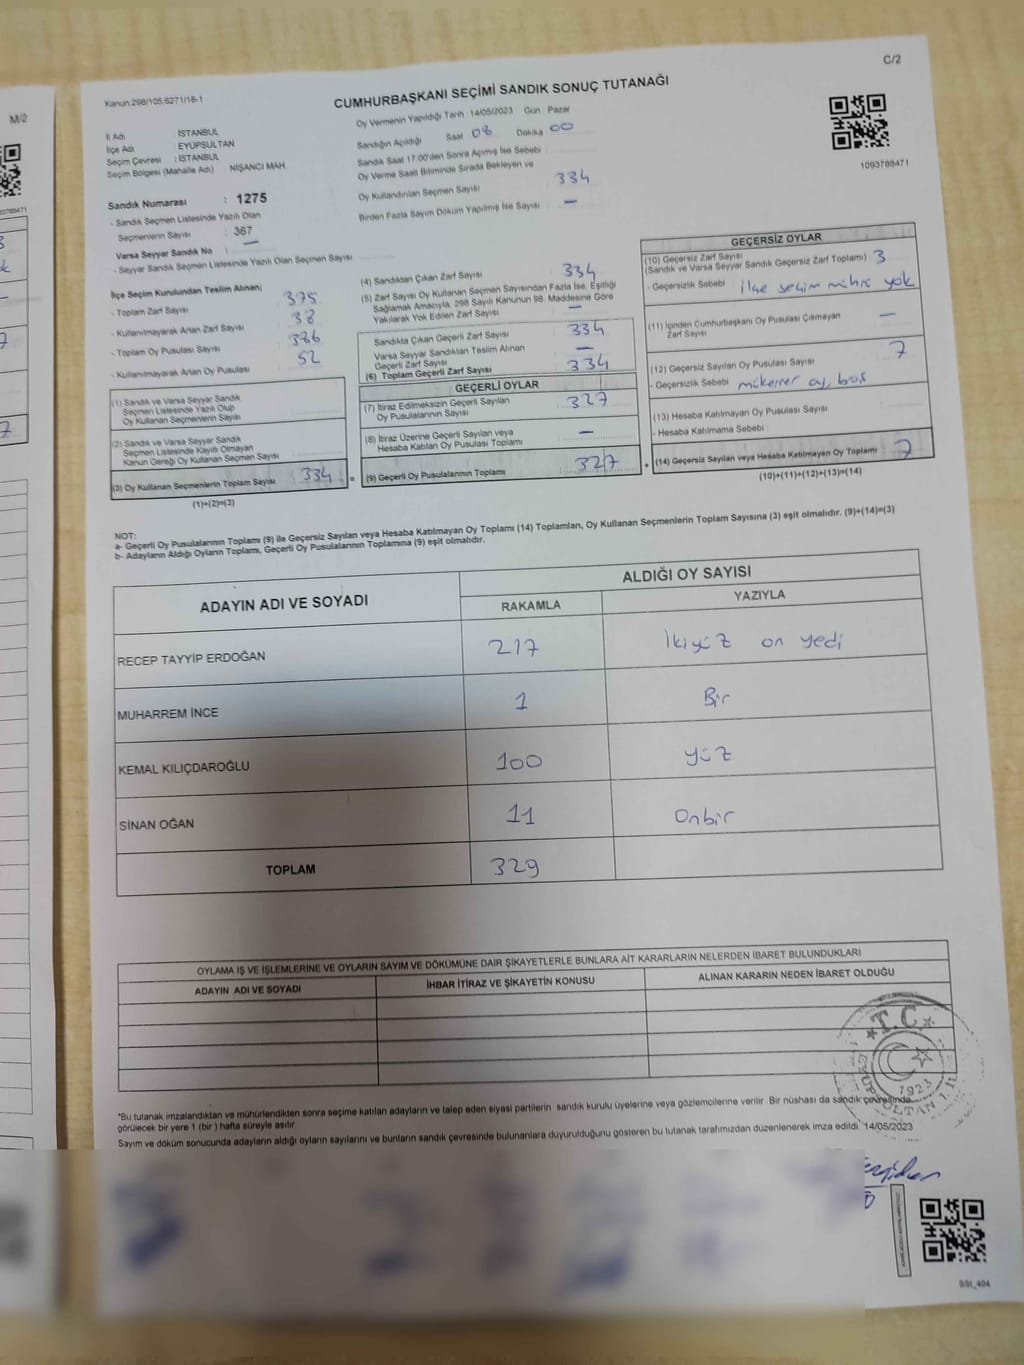 C/2
Kanun.298/105,6271/18-1
CUMHURBAŞKANI SEÇİMİ SANDIK SONUÇ TUTANAĞI
İl Adı : İSTANBUL
İlçe Adı : EYÜPSULTAN
Seçim Çevresi : İSTANBUL
Seçim Bölgesi (Mahalle Adı) : NİŞANCI MAH.
Sandık Numarası : 1275
- Sandık Seçmen Listesinde Yazılı Olan
Seçmenlerin Sayısı : 367
Varsa Seyyar Sandık No : —
- Seyyar Sandık Seçmen Listesinde Yazılı Olan Seçmen Sayısı
Oy Vermenin Yapıldığı Tarih 14/05/2023 Gün Pazar
Sandığın Açıldığı Saat 08 Dakika 00
Sandık Saat 17.00'den Sonra Açımış İse Sebebi
Oy Verme Saati Bitiminde Sırada Bekleyen ve
Oy Kullandırılan Seçmen Sayısı 334
Birden Fazla Sayım Döküm Yapılmış İse Sayısı —
1093788471
İlçe Seçim Kurulundan Teslim Alınan;
- Toplam Zarf Sayısı 375
- Kullanılmayarak Artan Zarf Sayısı 38
- Toplam Oy Pusulası Sayısı 386
- Kullanılmayarak Artan Oy Pusulası 52
(1) Sandık ve Varsa Seyyar Sandık
Seçmen Listesinde Yazılı Olup
Oy Kullanan Seçmenlerin Sayısı
(2) Sandık ve Varsa Seyyar Sandık
Seçmen Listesinde Kayıtlı Olmayan
Kanun Gereği Oy Kullanan Seçmen Sayısı
(3) Oy Kullanan Seçmenlerin Toplam Sayısı 334 =
(1)+(2)=(3)
(4) Sandıktan Çıkan Zarf Sayısı 334
(5) Zarf Sayısı Oy Kullanan Seçmen Sayısından Fazla İse, Eşitliği
Sağlamak Amacıyla, 298 Sayılı Kanunun 98. Maddesine Göre
Yakılarak Yok Edilen Zarf Sayısı —
Sandıkta Çıkan Geçerli Zarf Sayısı 334
Varsa Seyyar Sandıktan Teslim Alınan
Geçerli Zarf Sayısı —
(6) Toplam Geçerli Zarf Sayısı 334
GEÇERLİ OYLAR
(7) İtiraz Edilmeksizin Geçerli Sayılan
Oy Pusulalarının Sayısı 327
(8) İtiraz Üzerine Geçerli Sayılan veya
Hesaba Katılan Oy Pusulası Toplamı —
(9) Geçerli Oy Pusulalarının Toplamı 327 +
GEÇERSİZ OYLAR
(10) Geçersiz Zarf Sayısı
(Sandık ve Varsa Seyyar Sandık Geçersiz Zarf Toplamı) 3
- Geçersizlik Sebebi ilçe seçim mührü yok
(11) İçinden Cumhurbaşkanı Oy Pusulası Çıkmayan
Zarf Sayısı —
(12) Geçersiz Sayılan Oy Pusulası Sayısı 7
- Geçersizlik Sebebi mükerrer oy, boş
(13) Hesaba Katılmayan Oy Pusulası Sayısı
- Hesaba Katılmama Sebebi
(14) Geçersiz Sayılan veya Hesaba Katılmayan Oy Toplamı 7
(10)+(11)+(12)+(13)=(14)
NOT:
a- Geçerli Oy Pusulalarının Toplamı (9) ile Geçersiz Sayılan veya Hesaba Katılmayan Oy Toplamı (14) Toplamları, Oy Kullanan Seçmenlerin Toplam Sayısına (3) eşit olmalıdır. (9)+(14)=(3)
b- Adayların Aldığı Oyların Toplamı, Geçerli Oy Pusulalarının Toplamına (9) eşit olmalıdır.
ADAYIN ADI VE SOYADI
ALDIĞI OY SAYISI
RAKAMLA YAZIYLA
RECEP TAYYİP ERDOĞAN 217 İkiyüz on yedi
MUHARREM İNCE 1 Bir
KEMAL KILIÇDAROĞLU 100 yüz
SİNAN OĞAN 11 Onbir
TOPLAM 329
OYLAMA İŞ VE İŞLEMLERİNE VE OYLARIN SAYIM VE DÖKÜMÜNE DAİR ŞİKAYETLERLE BUNLARA AİT KARARLARIN NELERDEN İBARET BULUNDUKLARI
ADAYIN ADI VE SOYADI İHBAR İTİRAZ VE ŞİKAYETİN KONUSU ALINAN KARARIN NEDEN İBARET OLDUĞU
T.C.
1923
*Bu tutanak imzalandıktan ve mühürlendikten sonra seçime katılan adayların ve talep eden siyasi partilerin sandık kurulu üyelerine veya gözlemcilerine verilir. Bir nüshası da sandık çevresinde
görülecek bir yere 1 (bir) hafta süreyle asılır.
Sayım ve döküm sonucunda adayların aldığı oyların sayılarını ve bunların sandık çevresinde bulunanlara duyurulduğunu gösteren bu tutanak tarafımızdan düzenlenerek imza edildi. 14/05/2023
SSI_404
M/2